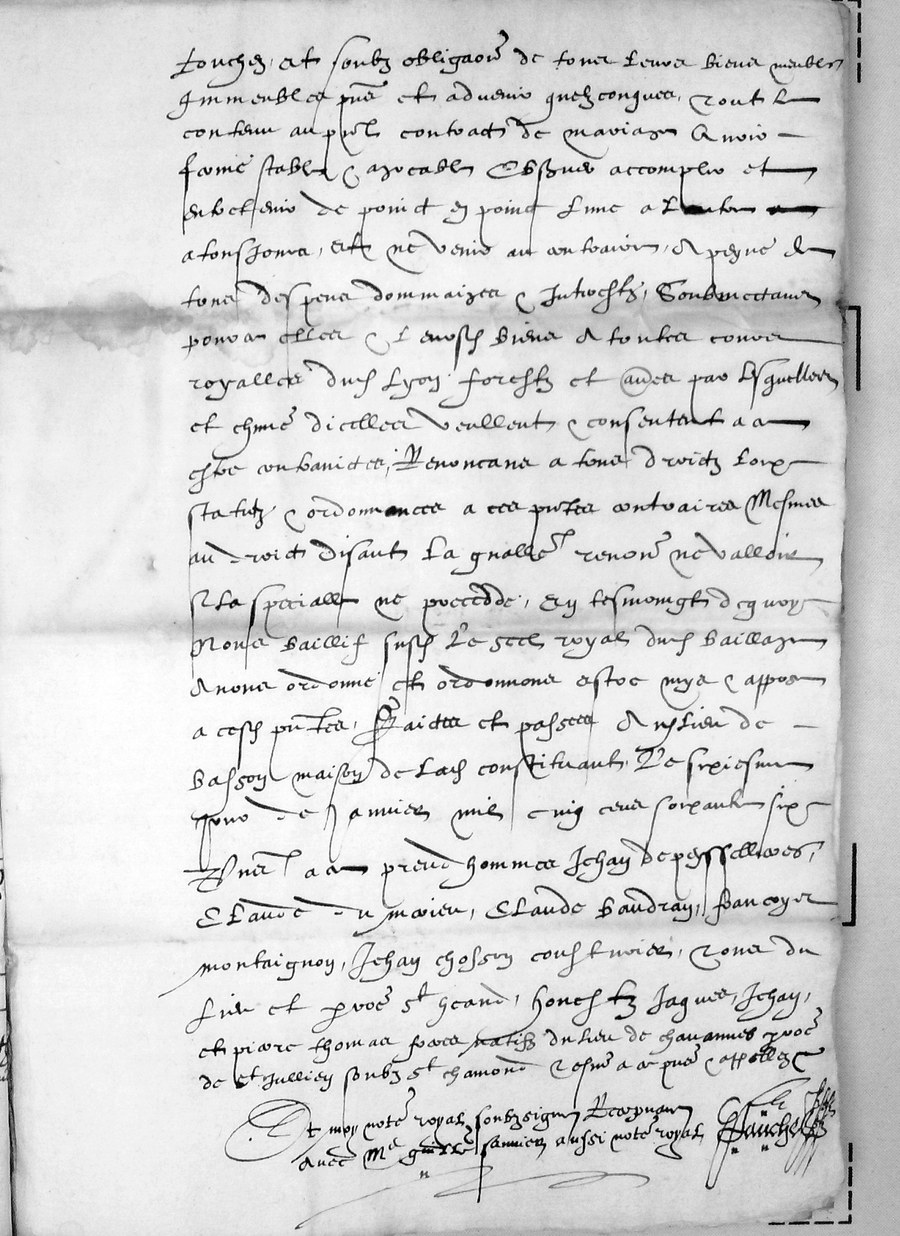 touchez et soubz obligaon de tous leurs biens meubles
Immeubles pns et advenir quelzconques, tout le
contenu au pnt contract de mariage Avoir
ferme stable & agreable Observer accomplir et
entretenir de poinct en poinct lune a lautre
a tousjours, et ne venir au contraire, A peyne de
tous despens dommaiges & Interestz, Soubmectans
pour ce elles & leursd biens A toutes cours
royalles dud Lyon forestz et aultres par lesquelles
et chune dicelles veullent & consentent a ce
estre contrainctes, Renoncans a tous droictz loix
statutz & ordonnances a ces pntes contraires Mesmes
au droict disant la gnalle renon ne valloir
si la specialle ne precedde, En tesmoingt dequoy
Nous baillif susd Le scel royal dud bailliage
Avons ordonné et ordonnons estre mys & appose
a cesd pntes, Faictes et passees Au lieu de
Basson maison de lad constituant, Le sixiesme
Jour de Janvier mil cinq cens soixante six
Pnes a ce preudhommes Jehan de peyssellieres,
Claude du merieu, Claude baudran, francoys
montaignon, Jehan chosson cousturier, tous du
lieu et proe st heand, honestz Jaques, Jehan,
et pierre thomas freres natifz du lieu de chavannes proe
de st Jullien soubz st chamond tesm a ce pns & appellez
Et moy note royal soubzsigne Recepvant
avec Me janvier aussi note royal